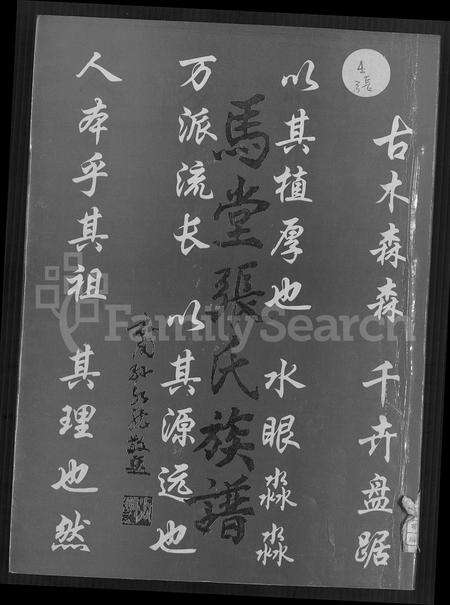 古木森森 千卉盘踞
以其植厚也 水眼淼淼
万派流长 以其源远也
人本乎其祖 其理也然
馬堂張氏族譜
敬题
FamilySearch